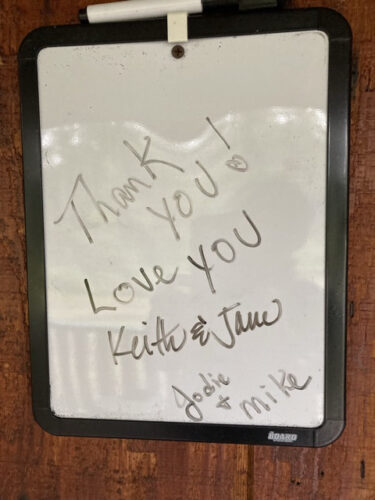 Thank
YOU!
Love YOU
Keith & Jane
Jodie
+ mike
BOARD